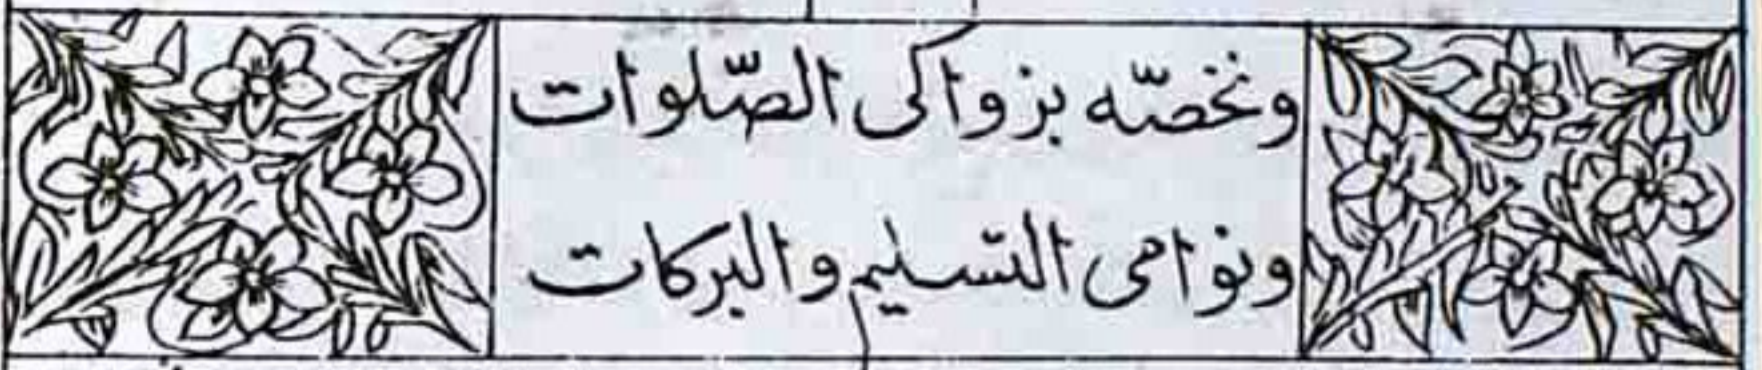 ونخصّه بزواكى الصّلوات
ونوامى التسليم والبركات